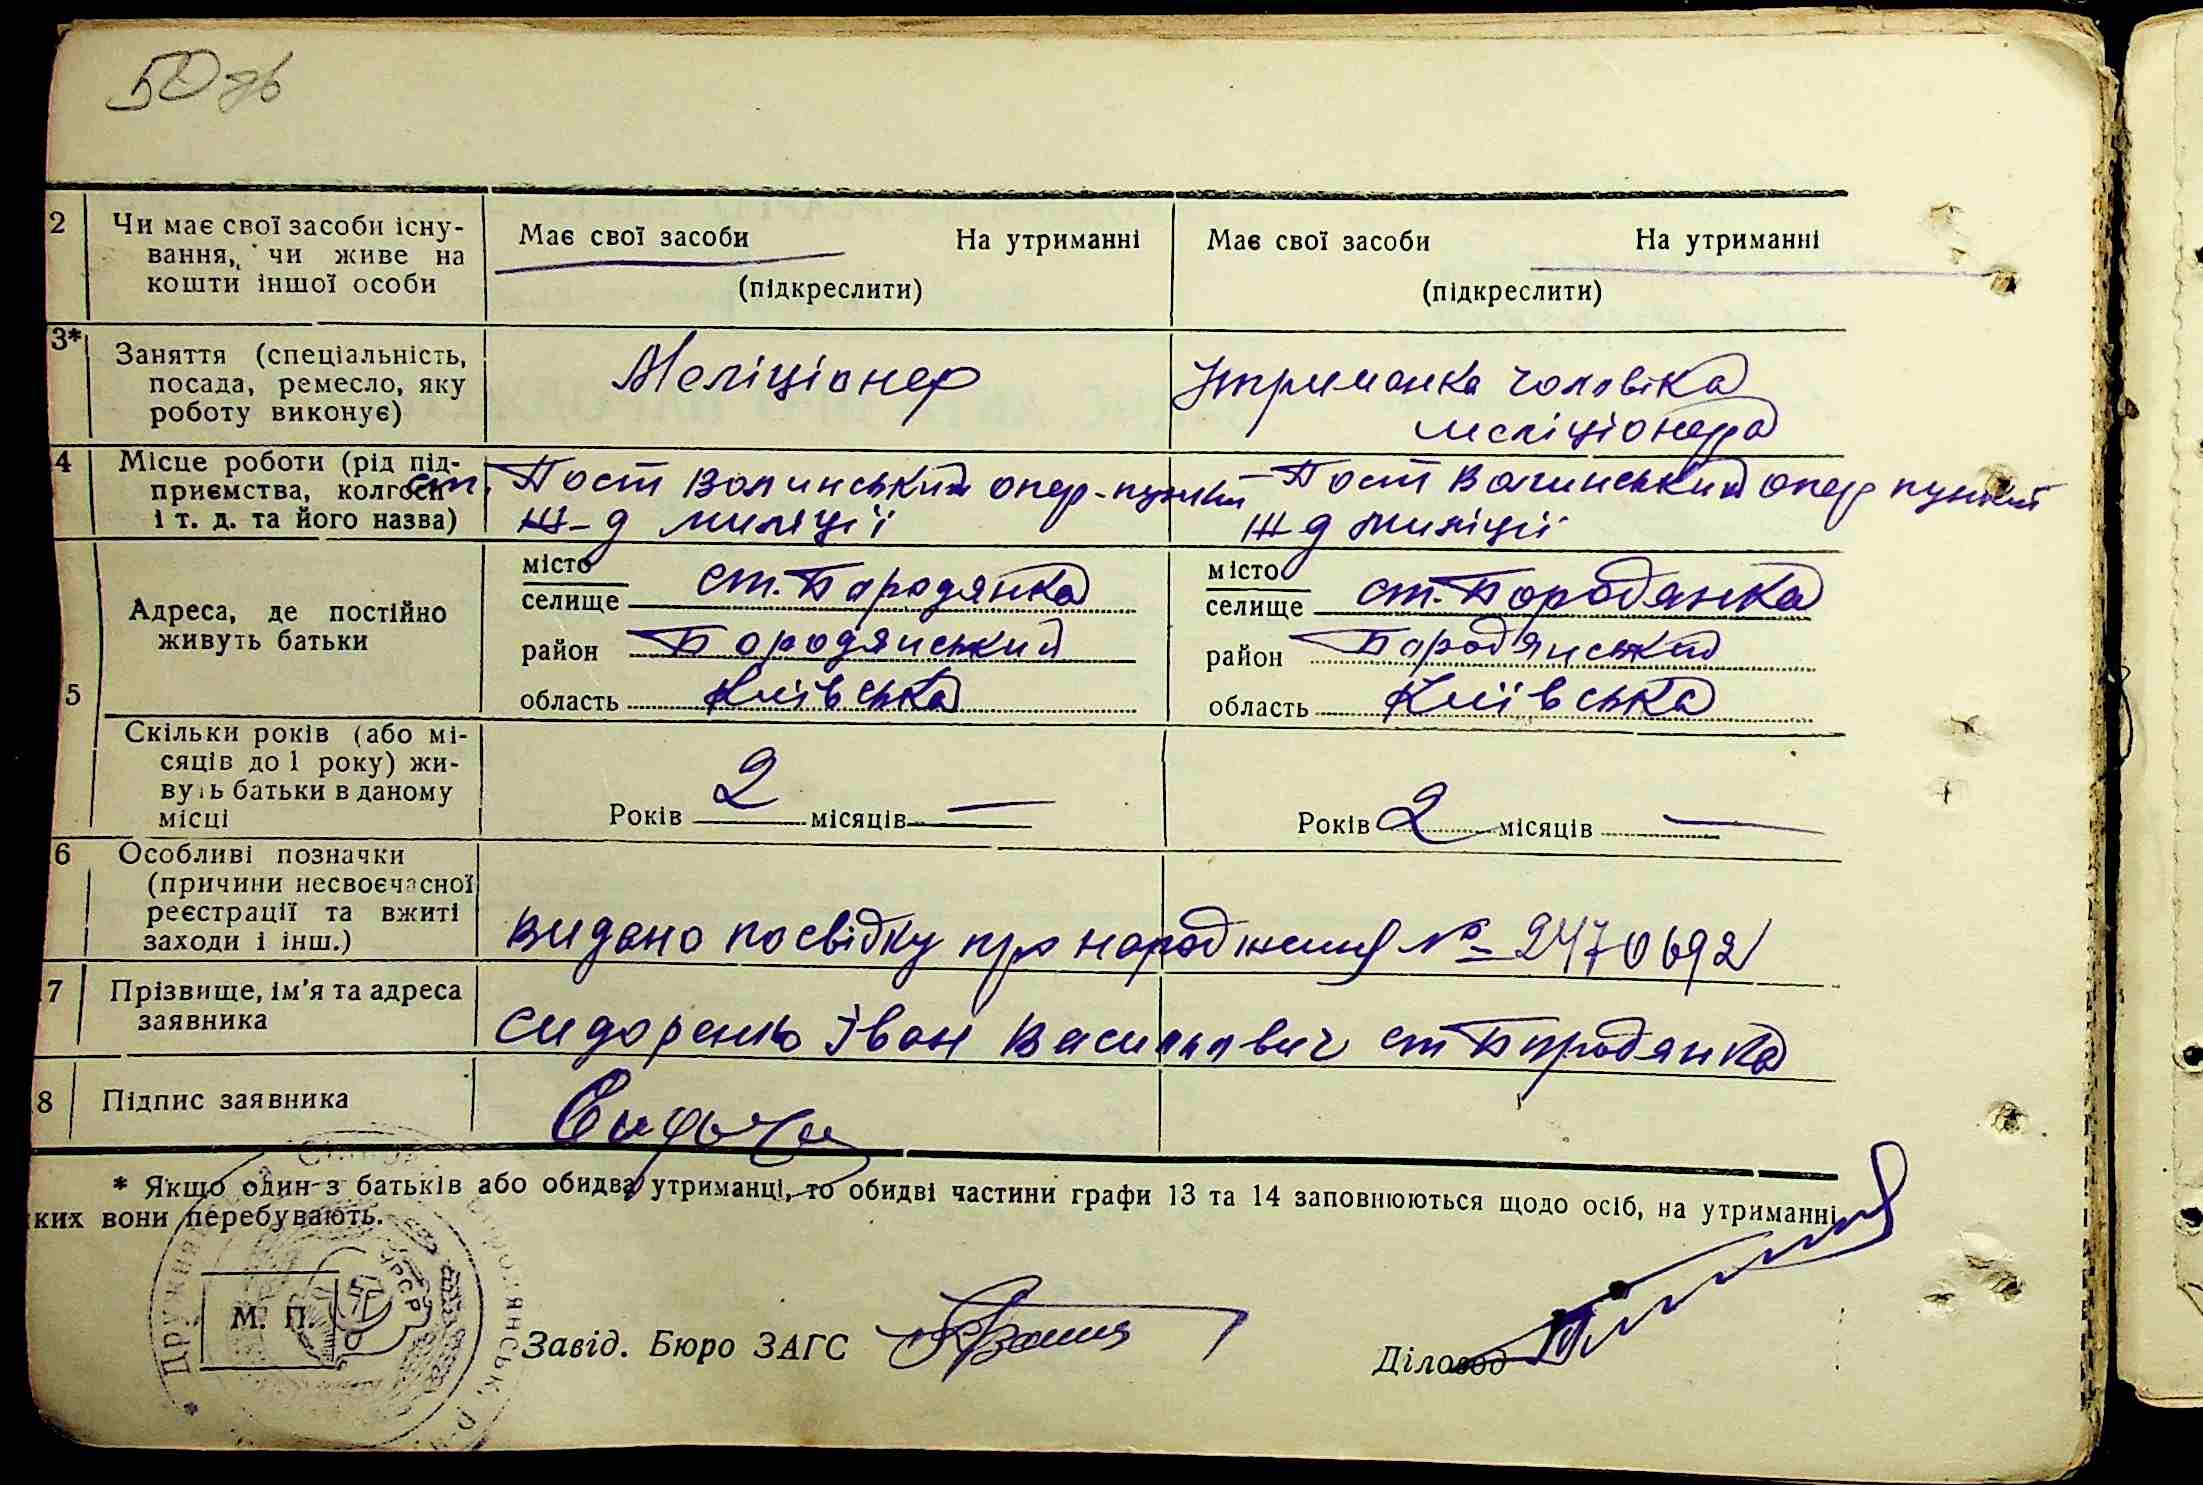 50
2 Чи має свої засоби існу-
вання, чи живе на
кошти іншої особи
Має свої засоби На утриманні
(підкреслити)
Має свої засоби На утриманні
(підкреслити)
3* Заняття (спеціальність,
посада, ремесло, яку
роботу виконує)
Меліціонер
Утриманка чоловіка
меліціонера
4 Місце роботи (рід під-
приємства, колгосп
і т. д. та його назва)
ст. Пост Волинський опер-пункт
Ж-д миліції
Пост Волинський опер пункт
Ж д миліції
5 Адреса, де постійно
живуть батьки
місто
селище ст. Бородянка
район Бородянський
область Київська
місто
селище ст. Бородянка
район Бородянський
область Київська
Скільки років (або мі-
сяців до 1 року) жи-
вуть батьки в даному
місці
Років 2 місяців —
Років 2 місяців —
6 Особливі позначки
(причини несвоєчасної
реєстрації та вжиті
заходи і інш.)
видано посвідку про народження № 2470692
7 Прізвище, ім'я та адреса
заявника
Сидоренко Іван Васильович ст Бородянка
8 Підпис заявника
* Якщо один з батьків або обидва утриманці, то обидві частини графи 13 та 14 заповнюються щодо осіб, на утриманні
ких вони перебувають.
М. П.
УРСР
Завід. Бюро ЗАГС
Діловод